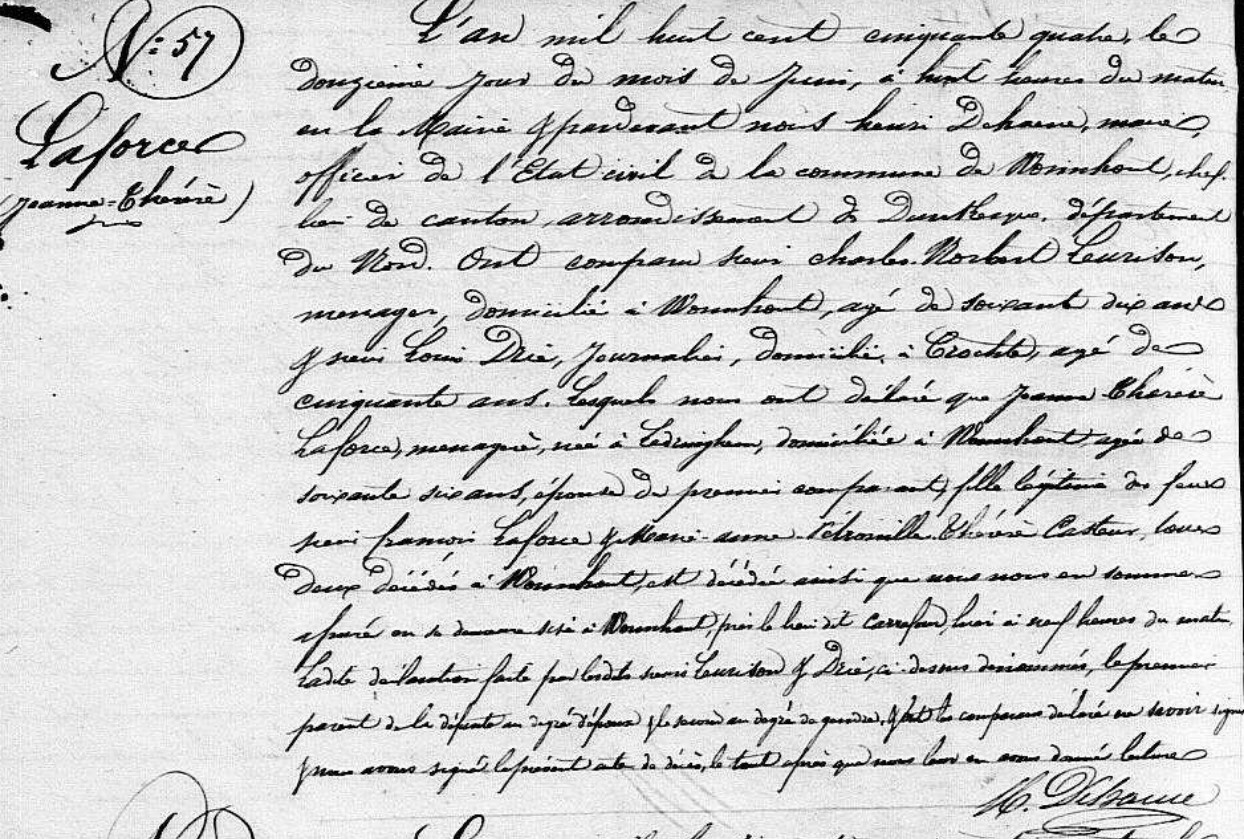 N: 57
Laforce
(Jeanne=Thérèse)
L'an mil huit cent cinquante quatre, le
douzieme jour du mois de Juin, à huit heures du matin
en la Mairie & pardevant nous henri Dehaene, maire,
officier de l'Etat civil de la commune de Wormhout, chef
lieu de canton, arrondissement de Dunkerque, département
du Nord. Ont comparu sieur charles Norbert Leurison,
menager, domicilié à Wormhout, agé de soixante dix ans
& sieur Louis Drie, Journalier, domicilié à Crochte, agé de
cinquante ans. Lesquels nous ont déclaré que Jeanne Thérèse
Laforce, menagère, née à Ledringhem, domiciliée à Wormhout agée de
soixante six ans, épouse du premier comparant, fille légitime des feus
sieur françois Laforce & Marie-anne Pétronille Thérèse Casteur, tous
deux décédés à Wormhout, est décédée ainsi que nous nous en sommes
assuré en sa demeure sise à Wormhout, près le lieu dit Carrefour, hier à neuf heures du matin.
Ladite déclaration faite par lesdits sieurs Leurison & Drie, ci-dessus dénommés, le premier
parent de la défunte au degré d'époux & le second au degré de gendre, & ont les comparans déclaré ne savoir signer
& nous avons signé le présent acte de décès, le tout après que nous leur en avons donné lecture
H. Dehaene